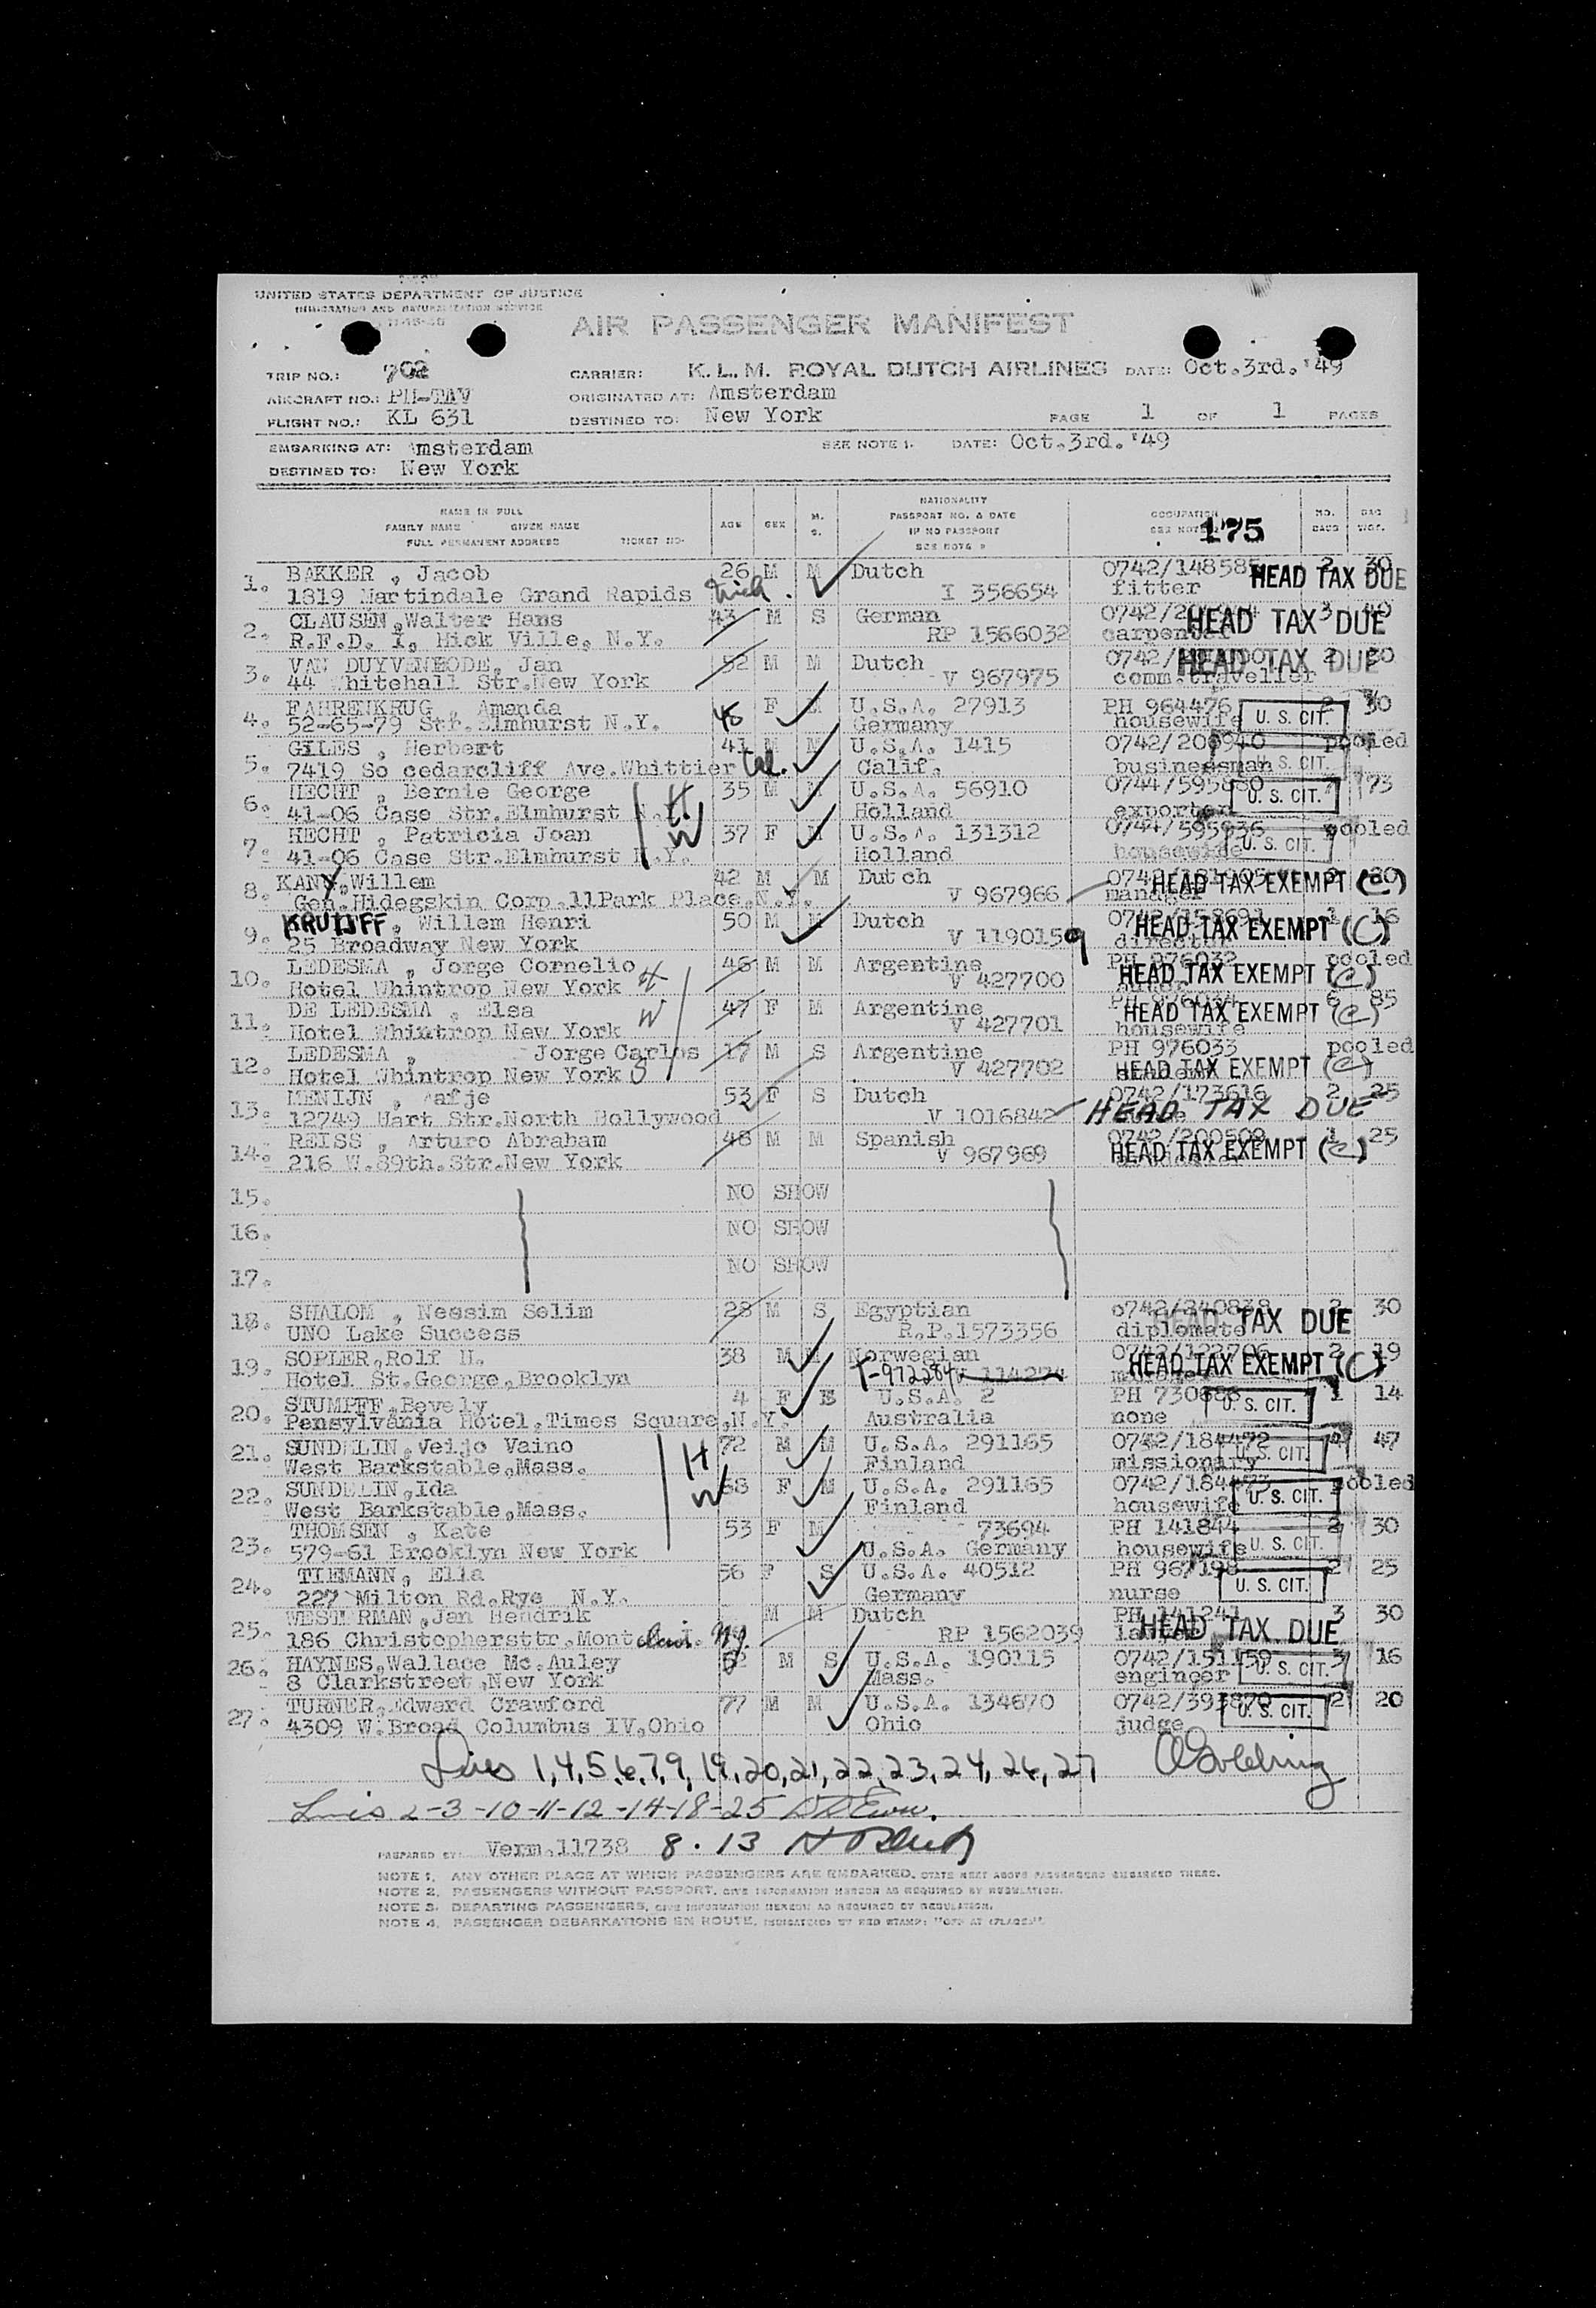 UNITED STATES DEPARTMENT OF JUSTICE
IMMIGRATION AND NATURALIZATION SERVICE
AIR PASSENGER MANIFEST
TRIP NO.:
CARRIER: K.L.M. ROYAL DUTCH AIRLINES DATE: Oct.3rd.'49
AIRCRAFT NO.: ORIGINATED AT: Amsterdam
FLIGHT NO.: KL 631 DESTINED TO: New York PAGE 1 OF 1 PAGES
EMBARKING AT: Amsterdam SEE NOTE 1. DATE: Oct.3rd.'49
DESTINED TO: New York
NAME IN FULL
FAMILY NAME GIVEN NAME
FULL PERMANENT ADDRESS TICKET NO.
AGE SEX M. S.
NATIONALITY
PASSPORT NO. & DATE
IF NO PASSPORT
SEE NOTE 2
OCCUPATION
SEE NOTE 175
NO. BAGS BAG WGT.
1. BAKKER , Jacob 26 M M Dutch 0742/148585 2 30
1819 Martindale Grand Rapids Mich. I 356654 fitter HEAD TAX DUE
2. CLAUSEN,Walter Hans 43 M S German 3 40
R.F.D. I, Hick Ville, N.Y. RP 1566032 carpenter HEAD TAX DUE
3. VAN DUYVENBODE, Jan 52 M M Dutch 2 30
44 Whitehall Str.New York V 967975 comm.traveller HEAD TAX DUE
4. FAHRENKRUG , Amanda 48 F M U.S.A. 27913 PH 964476 2 30
52-65-79 Str.Elmhurst N.Y. Germany housewife U. S. CIT.
5. GILES , Herbert 41 M M U.S.A. 1415 0742/200940 pooled
7419 So cedarcliff Ave.Whittier Cal. Calif. businessman U. S. CIT.
6. HECHT , Bernie George H 35 M M U.S.A. 56910 73
41-06 Case Str.Elmhurst N.Y. Holland exporter U. S. CIT.
7. HECHT , Patricia Joan W 37 F M U.S.A. 131312 pooled
41-06 Case Str.Elmhurst N.Y. Holland housewife U. S. CIT.
8. KANY,Willem 42 M M Dutch
Gen.Hidegskin Corp.11Park Place.N.Y. V 967966 manager HEAD TAX EXEMPT (C)
9. KRUIJFF , Willem Henri 50 M M Dutch 1 16
25 Broadway New York V 1190159 director HEAD TAX EXEMPT (C)
10. LEDESMA , Jorge Cornelio 46 M M Argentine PH 976032 pooled
Hotel Whintrop New York H V 427700 HEAD TAX EXEMPT (C)
11. DE LEDESMA , Elsa 47 F M Argentine PH 976034 6 85
Hotel Whintrop New York W V 427701 housewife HEAD TAX EXEMPT (C)
12. LEDESMA , Jorge Carlos 17 M S Argentine PH 976033 pooled
Hotel Whintrop New York S V 427702 HEAD TAX EXEMPT (C)
13. MENIJN , Aafje 53 F S Dutch 0742/173616 2 25
12749 Hart Str.North Hollywood V 1016842 HEAD TAX DUE
14. REISS , Arturo Abraham 48 M M Spanish 0742/200509 1 25
216 W.89th.Str.New York V 967969 HEAD TAX EXEMPT (C)
15. NO SHOW
16. NO SHOW
17. NO SHOW
18. SHALOM , Nessim Selim 28 M S Egyptian 0742/240838 2 30
UNO Lake Success R.P.1573356 diplomate HEAD TAX DUE
19. SOPLER,Rolf H. 38 M M Norwegian 2 19
Hotel St.George,Brooklyn HEAD TAX EXEMPT (C)
20. STUMPFF,Bevely 4 F U.S.A. 2 1 14
Pensylvania Hotel,Times Square,N.Y. Australia none U. S. CIT.
21. SUNDELIN,Veijo Vaino H 72 M M U.S.A. 291165 0742/184472 4 47
West Barkstable,Mass. Finland missionary U. S. CIT.
22. SUNDELIN,Ida W 68 F M U.S.A. 291165 0742/184473 pooled
West Barkstable,Mass. Finland housewife U. S. CIT.
23. THOMSEN , Kate 53 F M 73694 PH 141844 2 30
579-61 Brooklyn New York U.S.A. Germany housewife U. S. CIT.
24. TIEMANN, Ella 56 F S U.S.A. 40512 PH 967198 2 25
227 Milton Rd.Rye N.Y. Germany nurse U. S. CIT.
25. WESTERMAN,Jan Hendrik M M Dutch PH 141241 3 30
186 Christophersttr.Montclair. N.J. RP 1562039 lawyer HEAD TAX DUE
26. HAYNES,Wallace Mc.Auley 52 M S U.S.A. 190115 0742/151159 3 16
8 Clarkstreet,New York Mass. engineer U. S. CIT.
27. TURNER,Edward Crawford 77 M M U.S.A. 134670 0742/393870 2 20
4309 W.Broad Columbus IV,Ohio Ohio judge U. S. CIT.
Lines 1,4,5,6,7,9,19,20,21,22,23,24,26,27
Lines 2-3-10-11-12-14-18-25
PREPARED BY: Verm.11738 8 . 13
NOTE 1. ANY OTHER PLACE AT WHICH PASSENGERS ARE EMBARKED, STATE NEXT ABOVE PASSENGERS EMBARKED THERE.
NOTE 2. PASSENGERS WITHOUT PASSPORT, GIVE INFORMATION HEREON AS REQUIRED BY REGULATION.
NOTE 3. DEPARTING PASSENGERS, GIVE INFORMATION HEREON AS REQUIRED BY REGULATION.
NOTE 4. PASSENGER DEBARKATIONS EN ROUTE, INDICATED BY RED STAMP: "OFF AT (PLACE)".